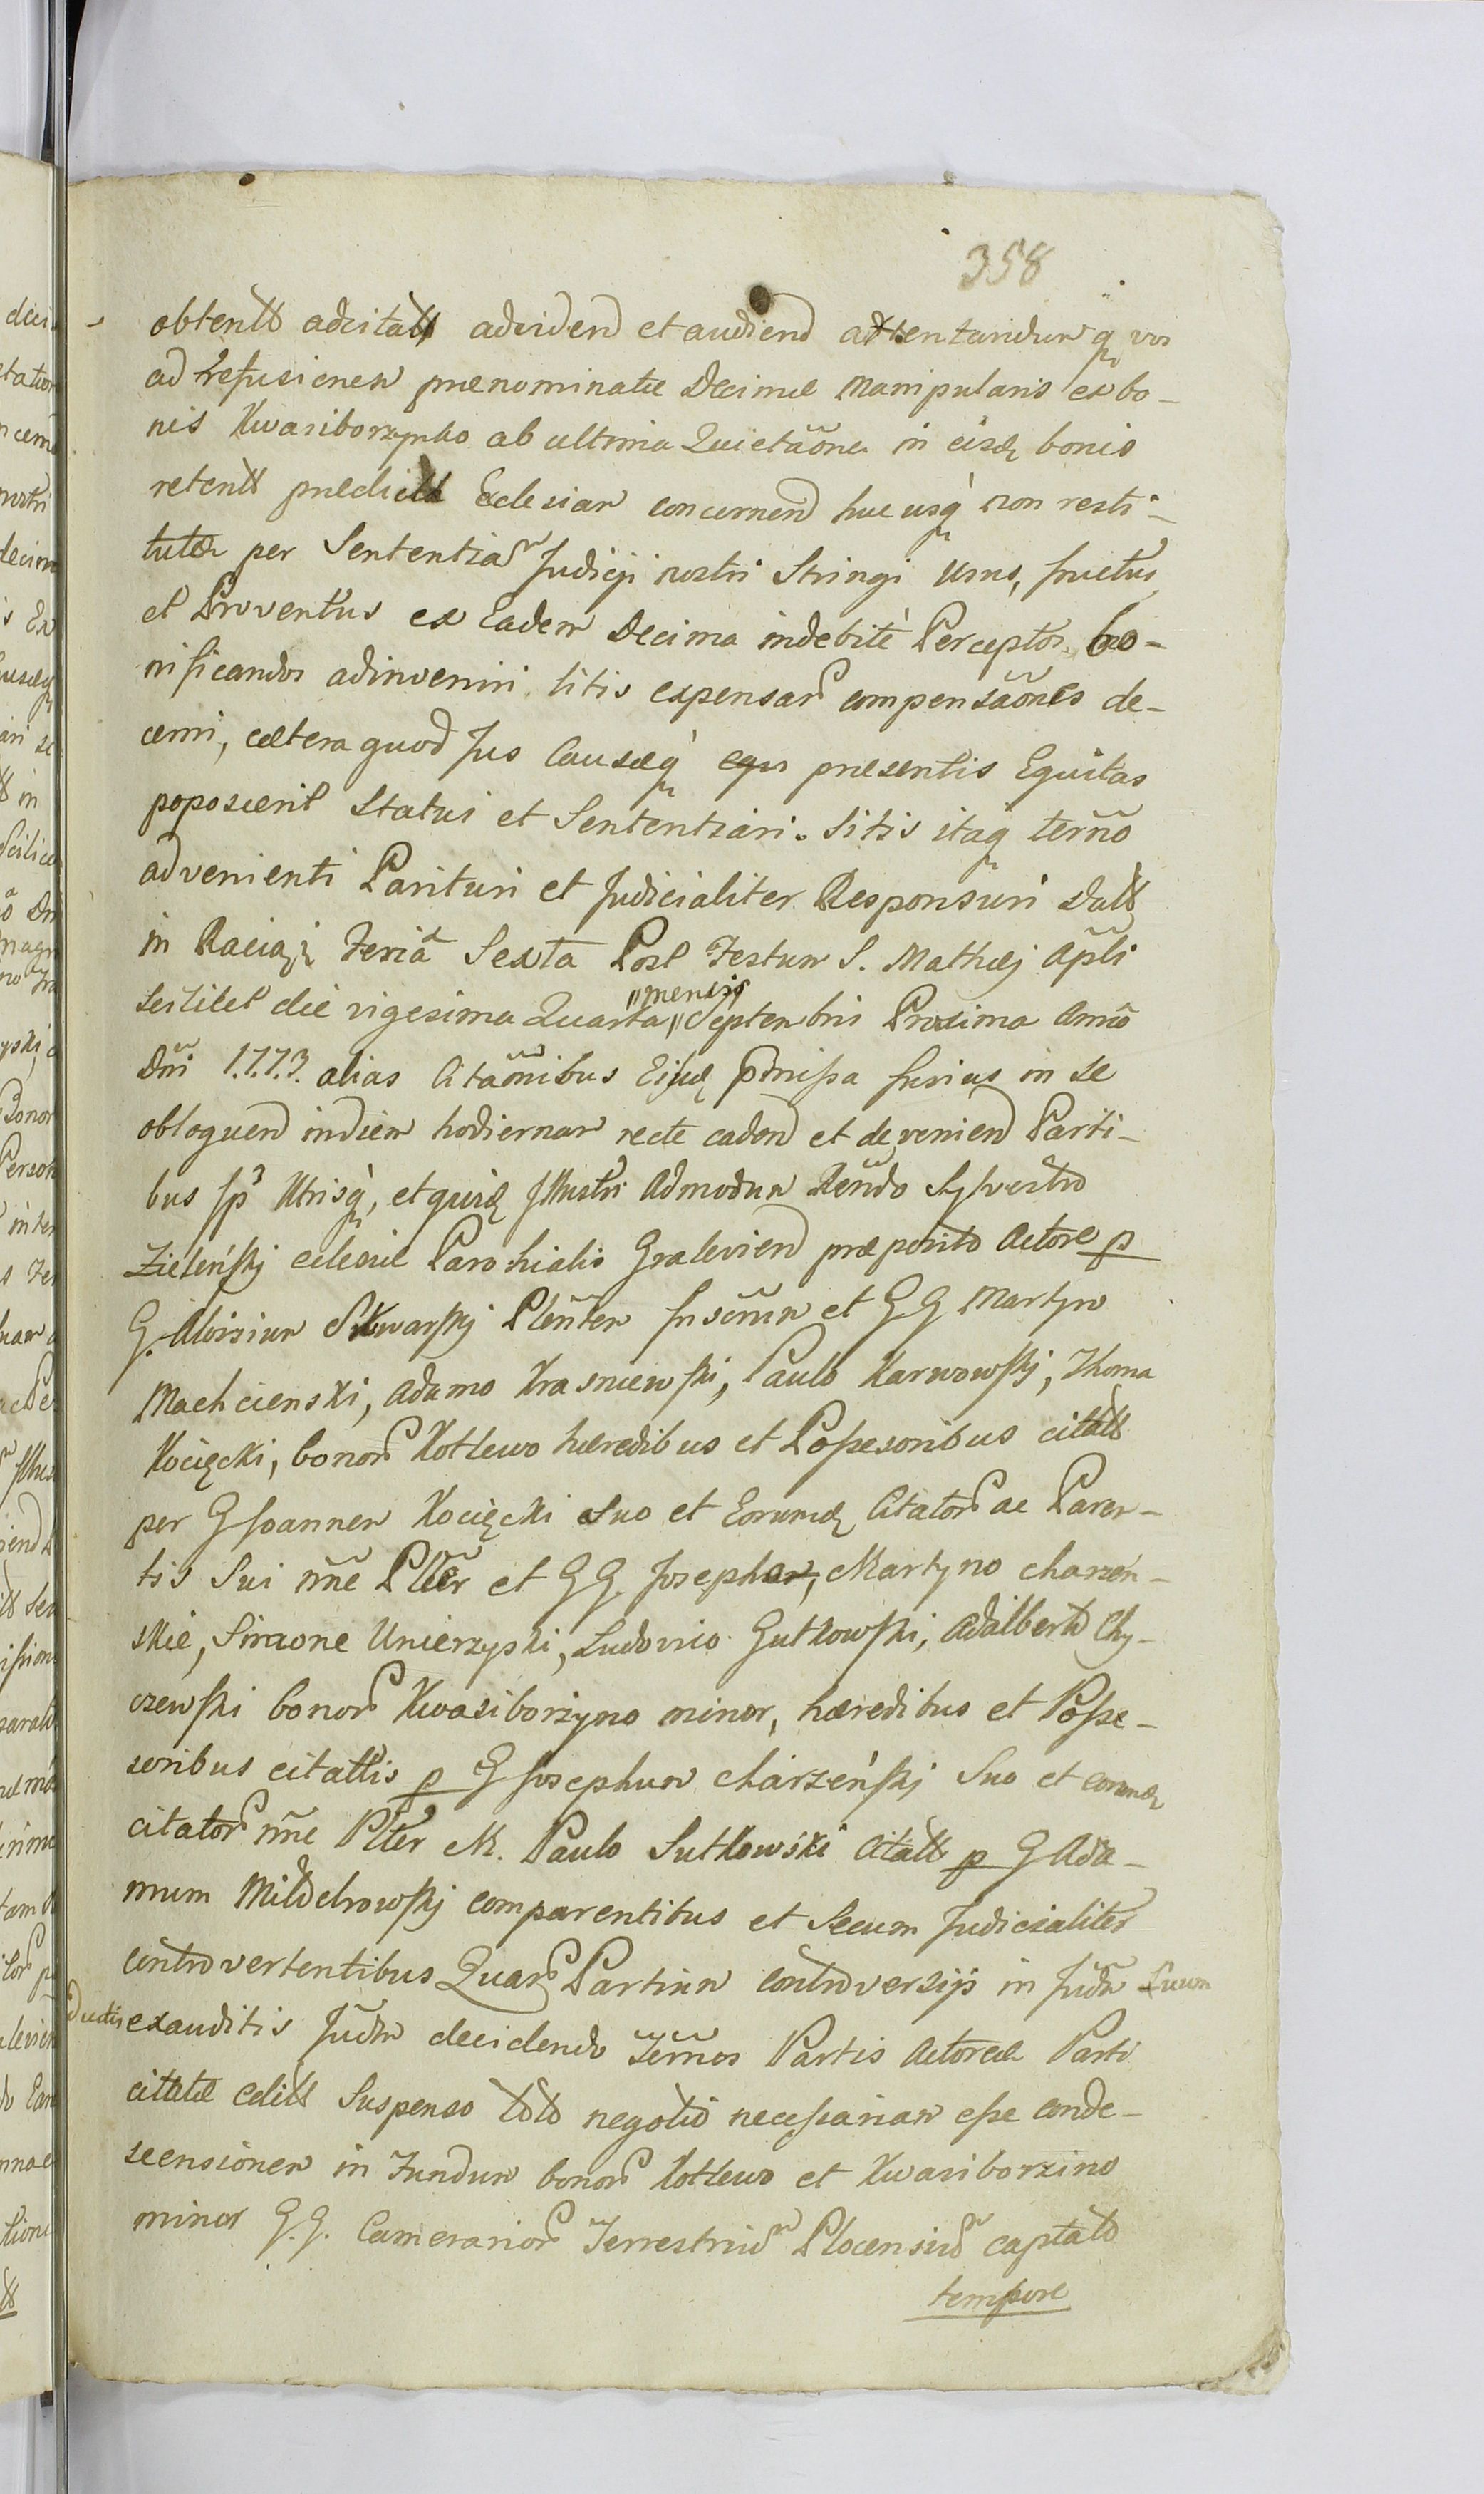 358
obtentt adcitatt advidend et audiend attentandum qꝫ vos
ad refusionem prænominatæ Decimæ Manipularis ex bo-
nis Kwasiborzynko ab ultima Quietãõne in eisdẽ bonis
retentt prædictæ Ecclesiam concernend huc usqꝫ non resti-
tutæ per Sententiam Judicij nostri Stringi Usus, fructus
et Proventus ex Eadem Decima indebitè Perceptos bo-
nificandos adinveniri, litis expensarũ compensãões de-
cerni, cætera quod Jus Causæqꝫ præsentis Equitas
poposcerit Statui et Sententiari. Sitis itaqꝫ terño
advenienti Parituri et Judicialiter Responsuri Datt
in Raciąż Feria Sexta Post Festum S. Mathæj Apl̃i
scilicet die vigesima Quarta „mensis„ Septembris Proxima Anno
Dñi 1.7.7.3. alias Citãõnibus Ejusdẽ præmissa fusius in se
obloquend in diem hodiernam recte cadend et deveniend Parti-
bus sp̃ Utrisqꝫ, et quidẽ Illustri Admodum Rendo Sylvestro
Zieleńskj ecclesiæ Parochialis Gralevien præposito Actore p
G. Aloisium Silwarskj Plẽnten Inscrum et GG Martyno
Machcienski, Adamo Krasniewski, Paulo Karwowskj, Thoma
Kocięcki, bonorũ Kotlewo hæredibus et Possesoribus citatt
per G Joannem Kocięcki Suo et Eorumdẽ Citatorũ ac Paren-
tis Sui ñne Pl̃ter et GG Joseph, Martyno charzen-
skie, Simone Unierzyski, Ludovico Gutkowski, Adalberto Chy-
czewski bonorũ Kwasiborzyno minor, hæredibus et Posse-
soribus citattis p G Josephum charzeńskj Suo et eorumdẽ
citatorũ ñne Pl̃ter M. Paulo Sutkowski Citatt p G Ada-
mum Mildelrowskj comparentibus et Secum Judicialiter
controvertentibus Quarũ Partium controversijs in Judm Suum
ductis exauditis Judm decidendo Terños Partis Actoreæ Parti
citatæ edilt Suspenso toto negotio necessariam esse conde-
scensionem in Fundum bonorũ Kotlewo et Kwasiborzino
minor G.G. Camerariorũ Terrestriũ Plocensiũ captato
tempore